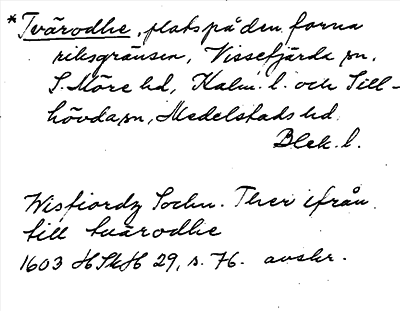 * Tvärödhe, plats på den forna
riksgränsen, Vissefjärda sn,
S. Möre hd, Kalm. l. och Till-
hövda sn, Medelstads hd.
Blek. l.
Wisfiordz Sochn. Ther ifrån
till tvärodhe
1603 HSkH 29, s. 76. avskr.